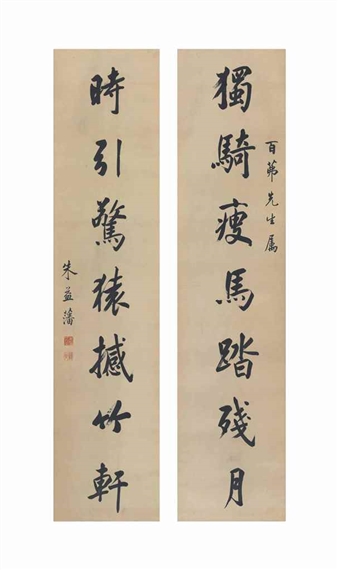 百茀先生屬
獨騎瘦馬踏殘月
時引驚猿撼竹軒
朱益藩